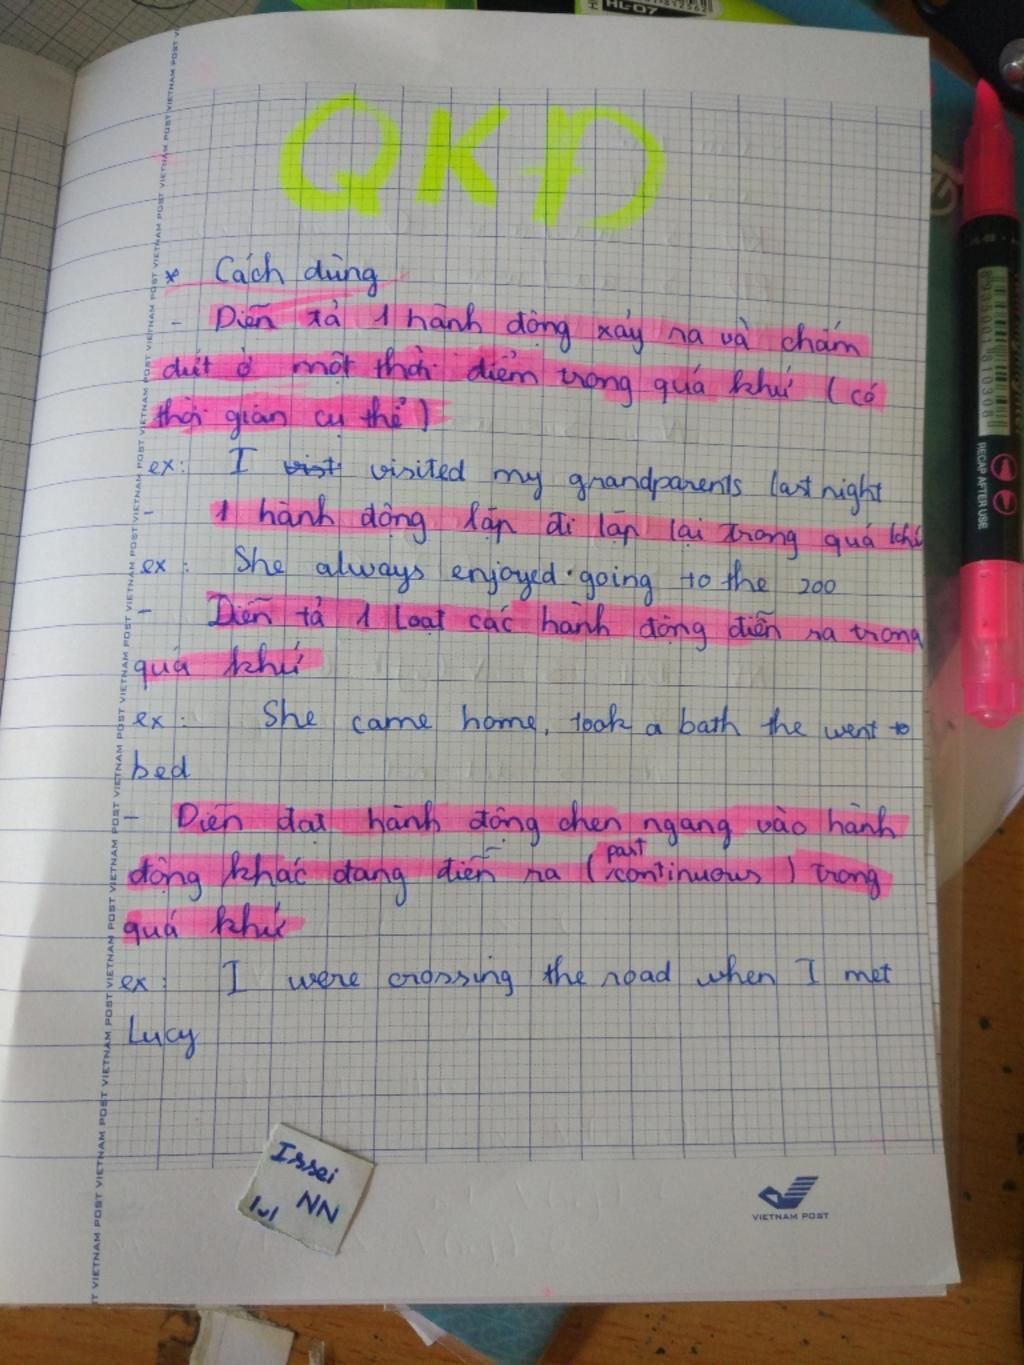 HL-07
QKĐ
* Cách dùng
- Diễn tả 1 hành động xảy ra và chấm
dứt ở một thời điểm trong quá khứ (có
thời gian cụ thể)
ex: I visited my grandparents last night
- 1 hành động lặp đi lặp lại trong quá khứ
ex: She always enjoyed going to the zoo
- Diễn tả 1 loạt các hành động diễn ra trong
quá khứ
ex: She came home, took a bath the went to
bed
- Diễn đạt hành động chen ngang vào hành
past
động khác đang diễn ra (continuous) trong
quá khứ
ex: I were crossing the road when I met
Lucy
Issei
NN
VIETNAM POST
VIETNAM POST VIETNAM POST VIETNAM POST VIETNAM POST VIETNAM POST VIETNAM POST VIETNAM POST
RECAP AFTER USE